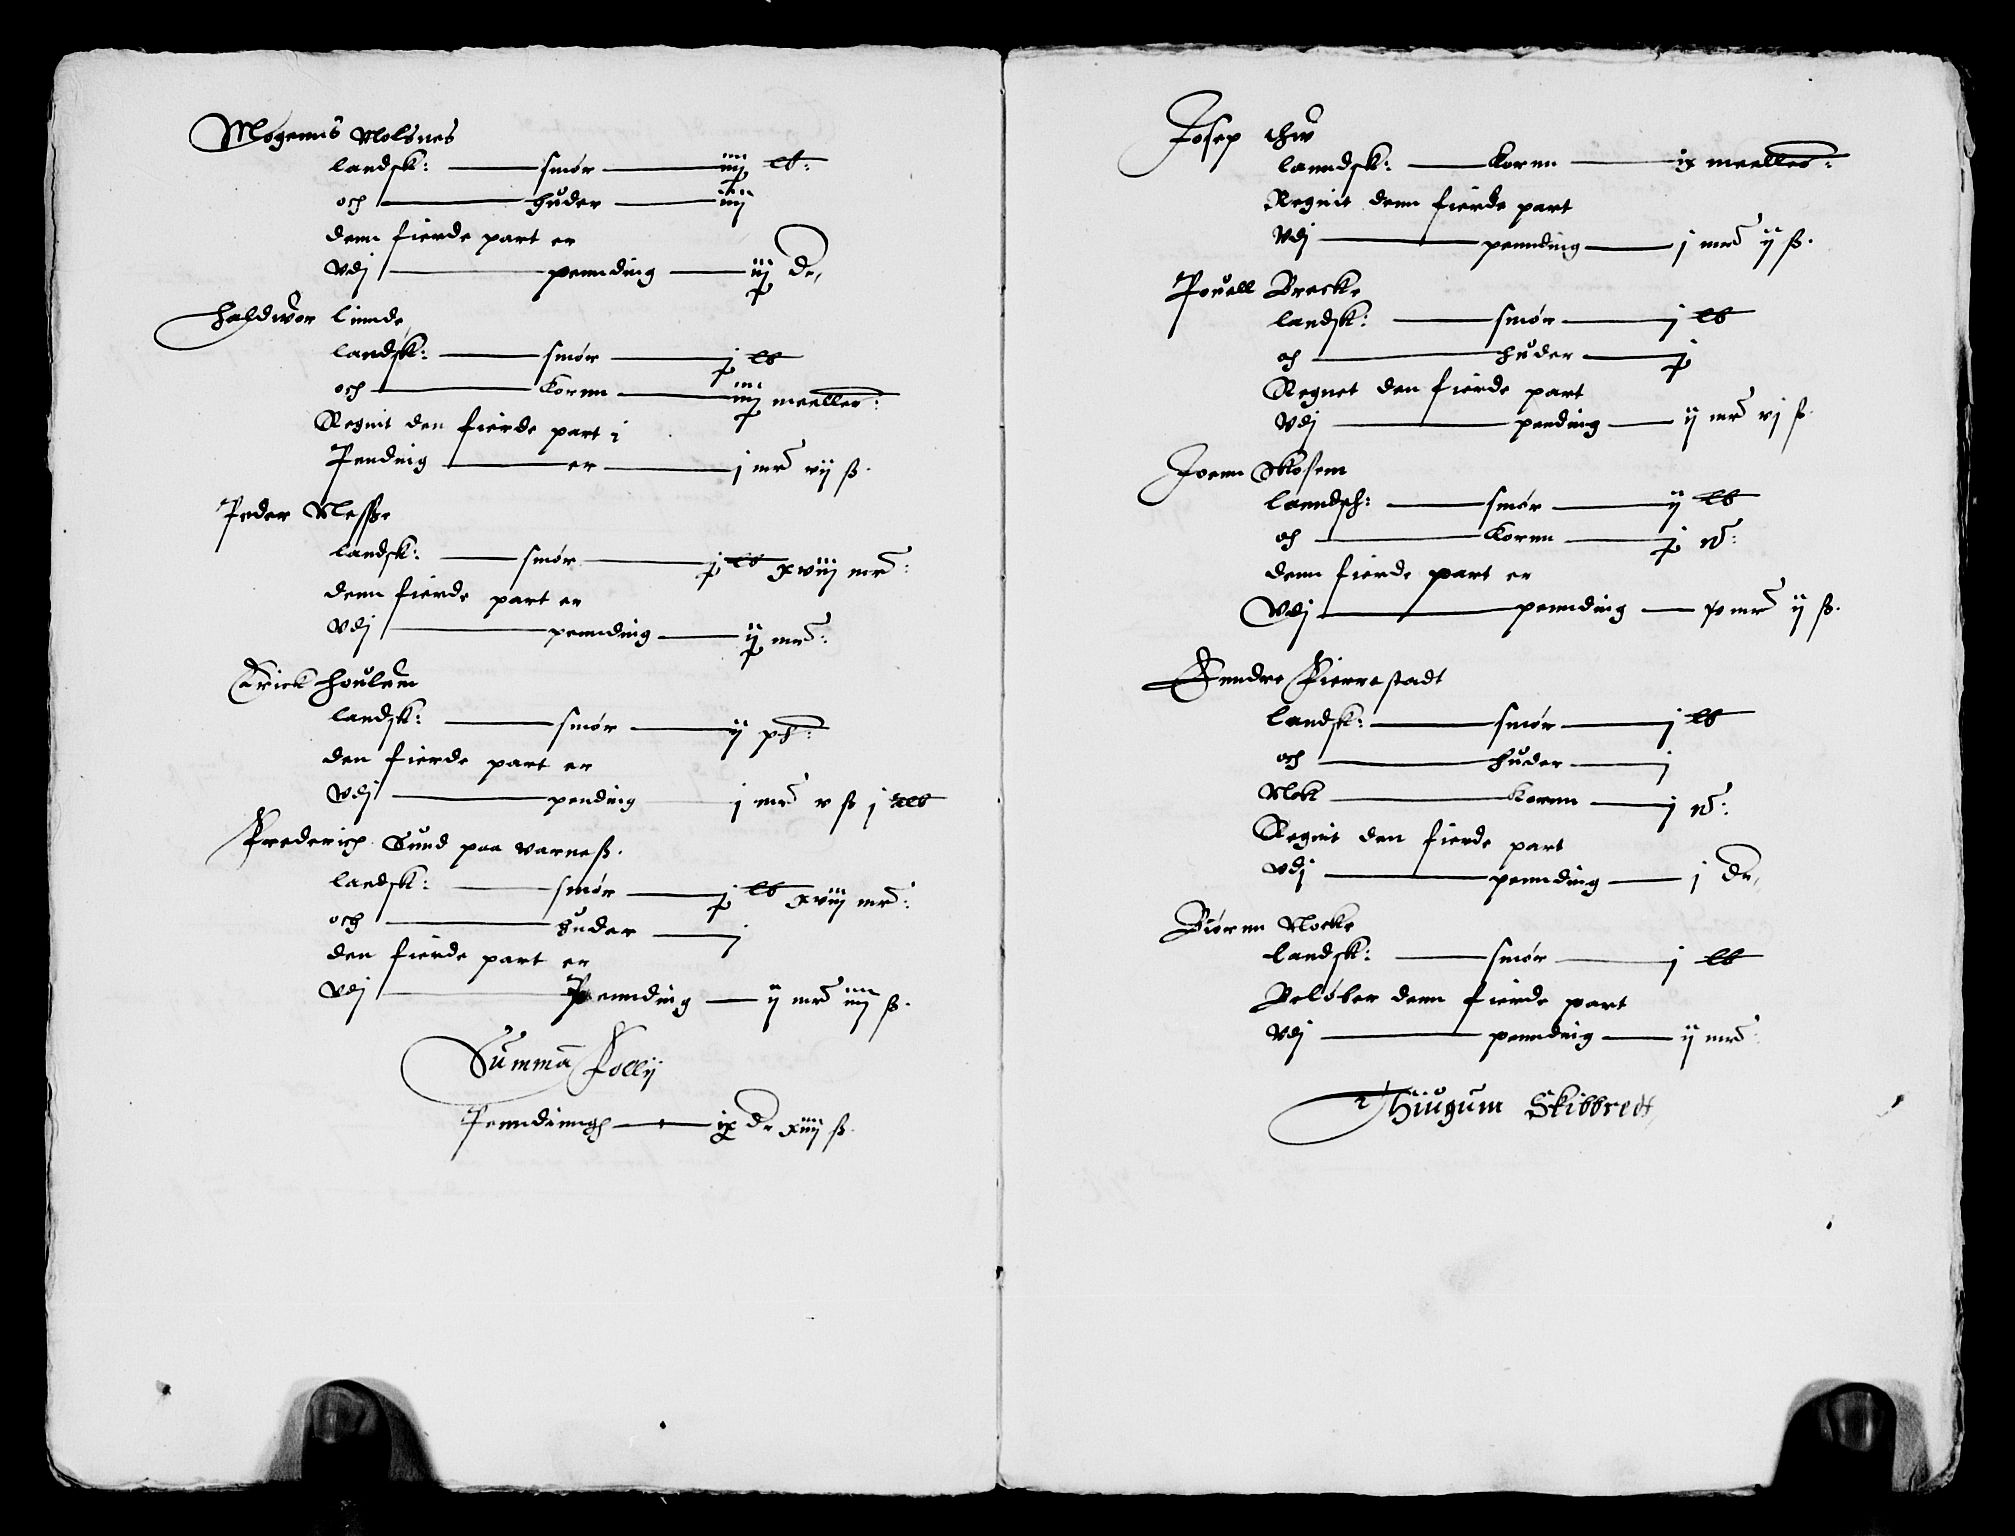 Mogenns Molsnes
landsk: — smør — iiij lb:
och — huder — iiij
denn fierde part er
Vdj — pennding — iij dr,
Haldwor Linnde
landsk: — smør — j lb
och — Kornn — iiij meeller:
Regnit den fierde part i
Pending — er — j mrk vij ß.
Peder Nesße
landsk: — smør — j lb xviij mrk:
denn fierde part er
Vdj — pennding — ij mrk:
Erick Houlem
landsk: — smør — ij pd:
den fierde part er
Vdj — pending — j mrk v ß j alb
Frederich Sund paa Varneß.
landsk: — smør — j lb xviij mrk:
och — huder — j
den fierde part er
Vdj — Pennding — ij mrk iiij ß.
Summa Follij
Penndingh — ix dr xiiij ß.
Josep
lanndsk: — Kornn — ix meeller:
Regnit denn fierde part
Vdj — pennding — j mrk ij ß.
Pouell Brecke
landsk: — smør — j lb
och — huder — j
Regnet den fierde part
Vdj — pending — ij mrk vj ß.
Joenn Skosem
lanndsch: — smør — ij lb
och — Kornn — j
denn fierde part er
Vdj — pennding — mrk ij ß.
Sendre Fierrestadt
landsk: — smør — j lb
och — huder — j
Nok — Kornn — j
Regnit den fierde part
Vdj — pennding — j dr,
Biørnn Mocke
landsk: — smør — j lb
Beløber denn fierde part
Vdj — pennding — ij mrk
Thiugum Skibbrett